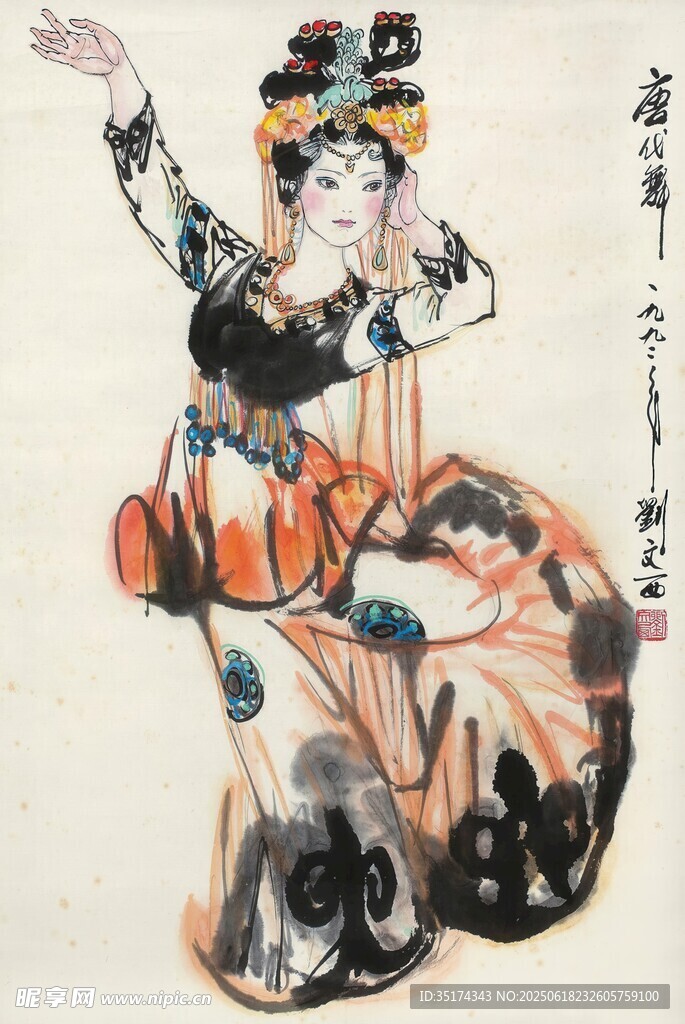 唐代舞
一九九二年
劉文西
昵享网 www.nipic.cn
ID:35174343 NO:20250618232605759100